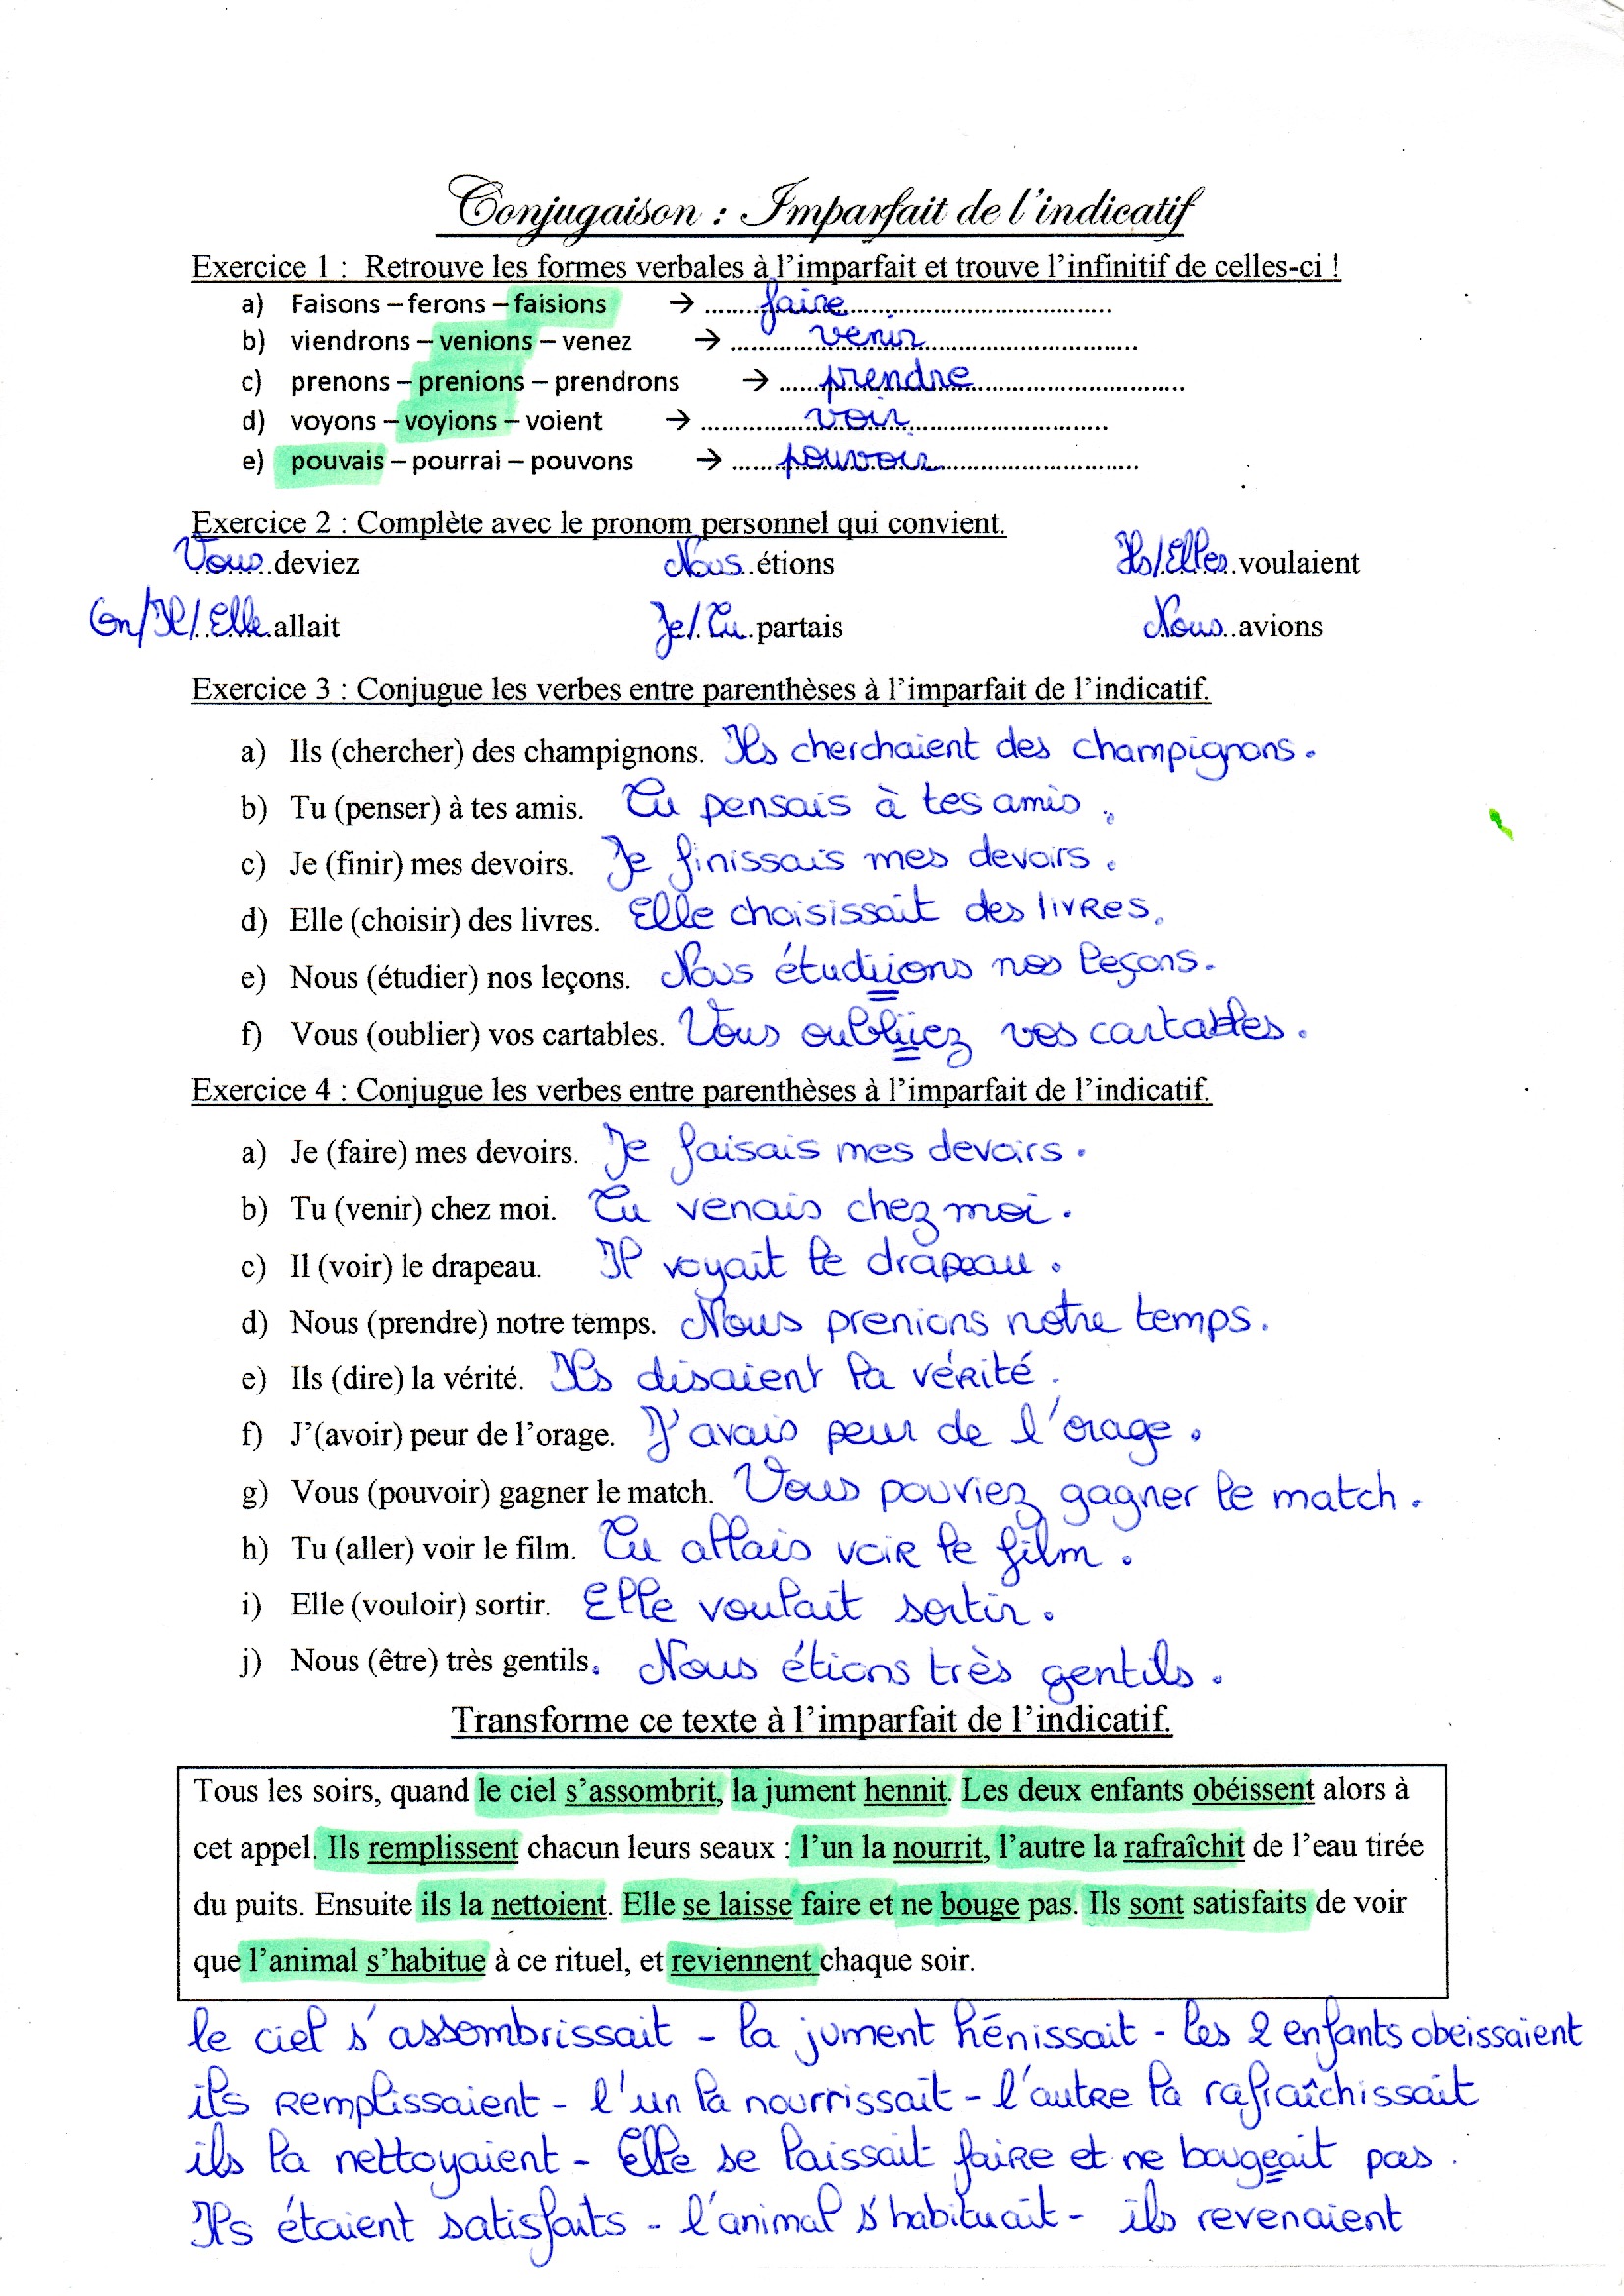 Conjugaison : Imparfait de l'indicatif
Exercice 1 : Retrouve les formes verbales à l'imparfait et trouve l'infinitif de celles-ci !
a) Faisons – ferons – faisions → ........faire........
b) viendrons – venions – venez → ........venir........
c) prenons – prenions – prendrons → ........prendre........
d) voyons – voyions – voient → ........voir........
e) pouvais – pourrai – pouvons → ........pouvoir........
Exercice 2 : Complète avec le pronom personnel qui convient.
Vous..deviez Nous..étions Ils/Elles..voulaient
On/Il/Elle.allait Je/Tu.partais Nous..avions
Exercice 3 : Conjugue les verbes entre parenthèses à l'imparfait de l'indicatif.
a) Ils (chercher) des champignons. Ils cherchaient des champignons.
b) Tu (penser) à tes amis. Tu pensais à tes amis.
c) Je (finir) mes devoirs. Je finissais mes devoirs.
d) Elle (choisir) des livres. Elle choisissait des livres.
e) Nous (étudier) nos leçons. Nous étudiions nos leçons.
f) Vous (oublier) vos cartables. Vous oubliiez vos cartables.
Exercice 4 : Conjugue les verbes entre parenthèses à l'imparfait de l'indicatif.
a) Je (faire) mes devoirs. Je faisais mes devoirs.
b) Tu (venir) chez moi. Tu venais chez moi.
c) Il (voir) le drapeau. Il voyait le drapeau.
d) Nous (prendre) notre temps. Nous prenions notre temps.
e) Ils (dire) la vérité. Ils disaient la vérité.
f) J'(avoir) peur de l'orage. J'avais peur de l'orage.
g) Vous (pouvoir) gagner le match. Vous pouviez gagner le match.
h) Tu (aller) voir le film. Tu allais voir le film.
i) Elle (vouloir) sortir. Elle voulait sortir.
j) Nous (être) très gentils. Nous étions très gentils.
Transforme ce texte à l'imparfait de l'indicatif.
Tous les soirs, quand le ciel s'assombrit, la jument hennit. Les deux enfants obéissent alors à
cet appel. Ils remplissent chacun leurs seaux : l'un la nourrit, l'autre la rafraîchit de l'eau tirée
du puits. Ensuite ils la nettoient. Elle se laisse faire et ne bouge pas. Ils sont satisfaits de voir
que l'animal s'habitue à ce rituel, et reviennent chaque soir.
le ciel s'assombrissait - la jument hénissait - les 2 enfants obeissaient
ils remplissaient - l'un la nourrissait - l'autre la rafraîchissait
ils la nettoyaient - Elle se laissait faire et ne bougeait pas.
Ils étaient satisfaits - l'animal s'habituait - ils revenaient